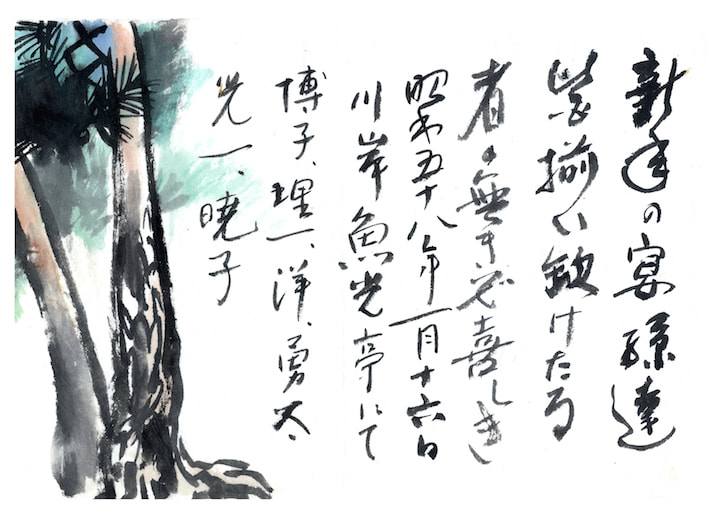 新年の宴孫達
皆揃い欠けたる
者の無きぞ喜しき
昭和五十八年一月十六日
川岸魚光亭にて
博子、理一、洋、勇太、
光一、暁子